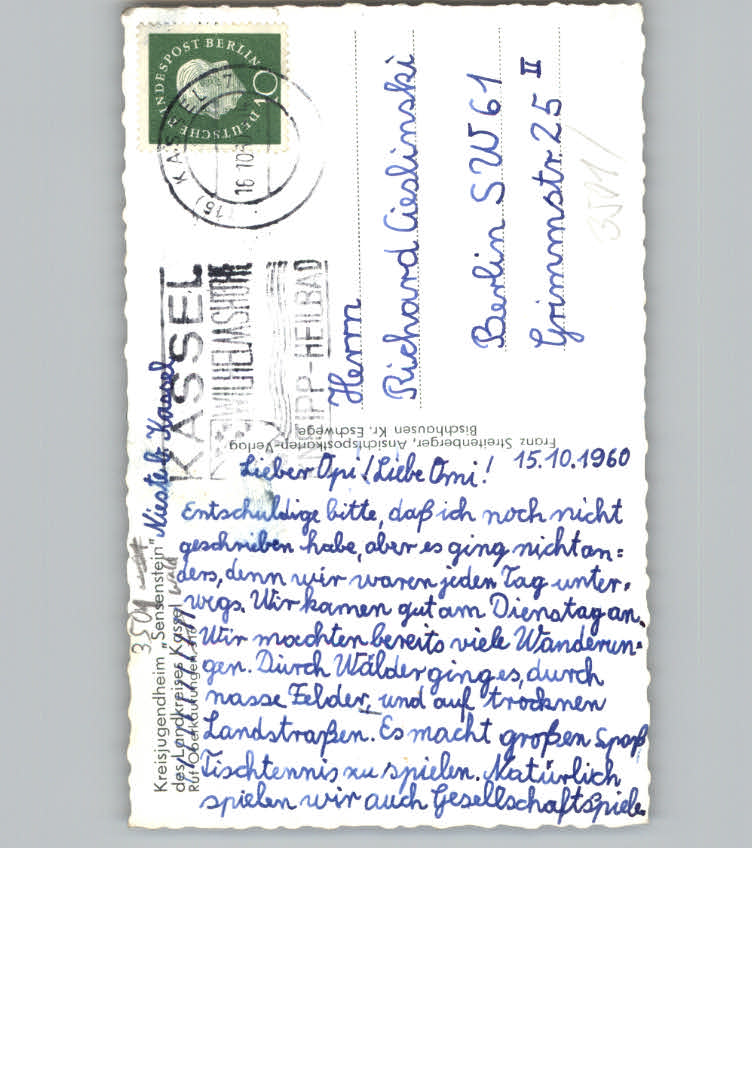 DEUTSCHE BUNDESPOST BERLIN
KASSEL
16.10.60
KASSEL
WILHELMSHÖHE
KNEIPP-HEILBAD
Herrn
Richard Cieslinski
Berlin SW 61
Grimmstr. 25 II
Franz Streitenberger, Ansichtspostkarten-Verlag
Bischhausen Kr. Eschwege
Kreisjugendheim „Sensenstein"
des Landkreises Kassel
Ruf Oberkaufungen
Niester b. Kassel
15.10.1960
Lieber Opi! Liebe Omi!
Entschuldige bitte, daß ich noch nicht
geschrieben habe, aber es ging nicht an=
ders, denn wir waren jeden Tag unter=
wegs. Wir kamen gut am Dienstag an.
Wir machten bereits viele Wanderun=
gen. Durch Wälder ging es, durch
nasse Felder, und auf trocknen
Landstraßen. Es macht großen Spaß
Tischtennis zu spielen. Natürlich
spielen wir auch Gesellschaftspiele.